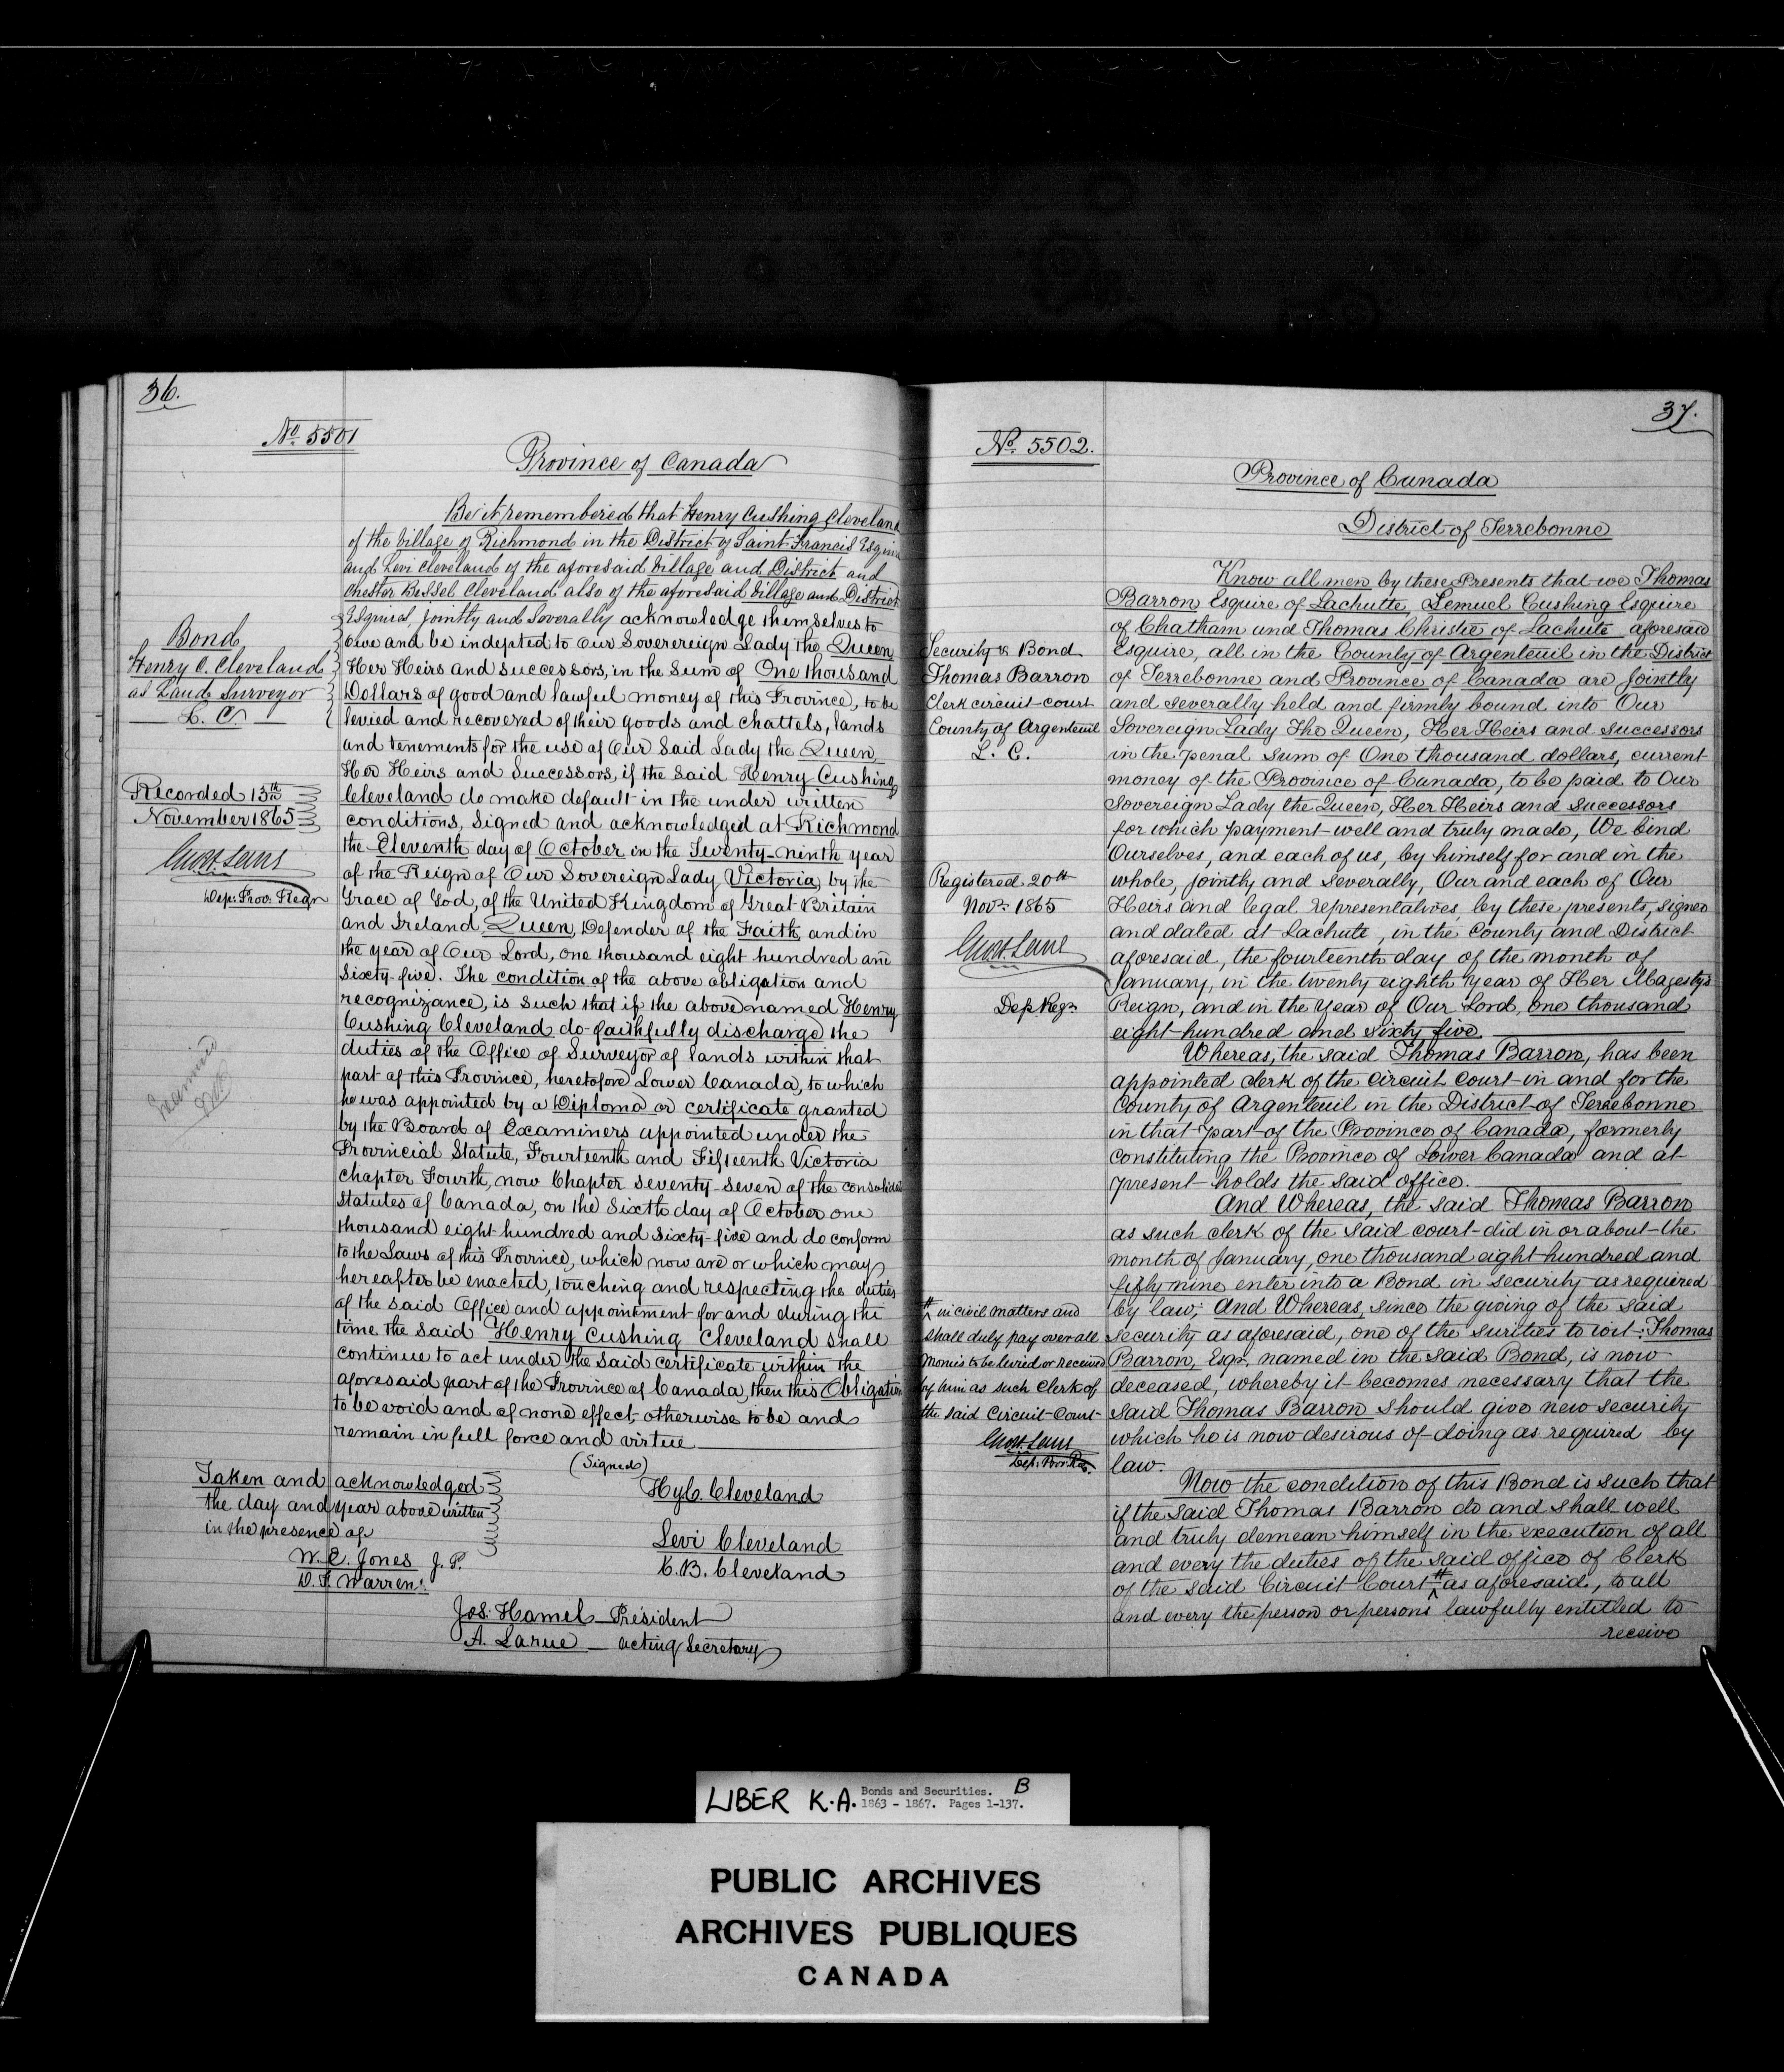 36.
No. 5501
Province of Canada
Be it remembered that Henry Cushing Cleveland
of the Village of Richmond in the District of Saint Francis Esquire
and Levi Cleveland of the aforesaid Village and District and
Chester Bessel Cleveland also of the aforesaid Village and District
Esquires, jointly and Severally acknowledge themselves to
owe and be indepted to Our Soverereign Lady the Queen
Her Heirs and successors, in the Sum of One thousand
Dollars of good and lawful money of this Province, to be
levied and recovered of their goods and chattels, lands
and tenements for the use of Our Said Lady the Queen,
Her Heirs and Successors, if the said Henry Cushing
Cleveland do make default in the under written
conditions, Signed and acknowledged at Richmond
the Eleventh day of October in the Twenty-ninth year
of the Reign of Our Sovereign Lady Victoria, by the
Grace of God, of the United Kingdom of Great Britain
and Ireland, Queen, Defender of the Faith, and in
the year of Our Lord, one thousand eight hundred and
Sixty-five. The condition of the above obligation and
recognizance, is such that if the above named Henry
Cushing Cleveland do faithfully discharge the
duties of the Office of Surveyor of lands within that
part of this Province, heretofore Lower Canada, to which
he was appointed by a Diploma or certificate granted
by the Board of Examiners appointed under the
Provincial Statute, Fourteenth and Fifteenth Victoria
Chapter Fourth, now Chapter Seventy-Seven of the
Statutes of Canada, on the Sixth day of October one
thousand eight hundred and Sixty-five and do conform
to the Laws of this Province, which now are or which may
hereafter be enacted, touching and respecting the duties
of the said Office and appointment for and during the
time the said Henry Cushing Cleveland shall
continue to act under the said certificate within the
aforesaid part of the Province of Canada, then this Obligation
to be void and of none effect, otherwise to be and
remain in full force and virtue
Bond
Henry C. Cleveland
as Land Surveyor
L. C.
Recorded 13th
November 1865
Dep: Prov: Regr
(Signed)
Hy C. Cleveland
Levi Cleveland
C. B. Cleveland
Taken and acknowledged
the day and year above written
in the presence of
W. E. Jones J. P.
D. T. Warren
Jos. Hamel President
A. Larue acting Secretary
37.
No. 5502.
Province of Canada
District of Terrebonne
Know all men by these Presents that we Thomas
Barron Esquire of Lachutte, Lemuel Cushing Esquire
of Chatham and Thomas Christie of Lachute aforesaid
Esquire, all in the County of Argenteuil in the District
of Terrebonne and Province of Canada are jointly
and severally held and firmly bound into Our
Sovereign Lady The Queen, Her Heirs and successors
in the penal sum of One thousand dollars, current
money of the Province of Canada, to be paid to Our
Sovereign Lady the Queen, Her Heirs and successors
for which payment well and truly made, We bind
Ourselves, and each of us, by himself for and in the
whole, jointly and severally, Our and each of Our
Heirs and legal representatives, by these presents, signed
and dated at Lachute, in the County and District
aforesaid, the fourteenth day of the month of
January, in the twenty eighth year of Her Majesty's
Reign, and in the Year of Our Lord, one thousand
eight hundred and sixty five.
Whereas, the said Thomas Barron, has been
appointed clerk of the Circuit Court in and for the
County of Argenteuil in the District of Terrebonne
in that part of the Province of Canada, formerly
constituting the Province of Lower Canada and at
present holds the said office.
And Whereas, the said Thomas Barron
as such clerk of the said court did in or about the
month of January, one thousand eight hundred and
fifty nine enter into a Bond in security as required
by law; And Whereas, since the giving of the said
security as aforesaid, one of the surities to wit: Thomas
Barron, Esqr. named in the said Bond, is now
deceased, whereby it becomes necessary that the
said Thomas Barron should give new security
which he is now desirous of doing as required by
law.
Now the condition of this Bond is such that
if the said Thomas Barron do and shall well
and truly demean himself in the execution of all
and every the duties of the said office of Clerk
of the said Circuit Court # as aforesaid, to all
and every the person or persons lawfully entitled to
receive
Security & Bond
Thomas Barron
Clerk circuit court
County of Argenteuil
L. C.
Registered 20th
Nov: 1865
Dep Regr
# in civil matters and
shall duly pay over all
monies to be levied or received
by him as such Clerk of
the said Circuit Court
LIBER K.A. Bonds and Securities. B
1863 - 1867. Pages 1-137.
PUBLIC ARCHIVES
ARCHIVES PUBLIQUES
CANADA